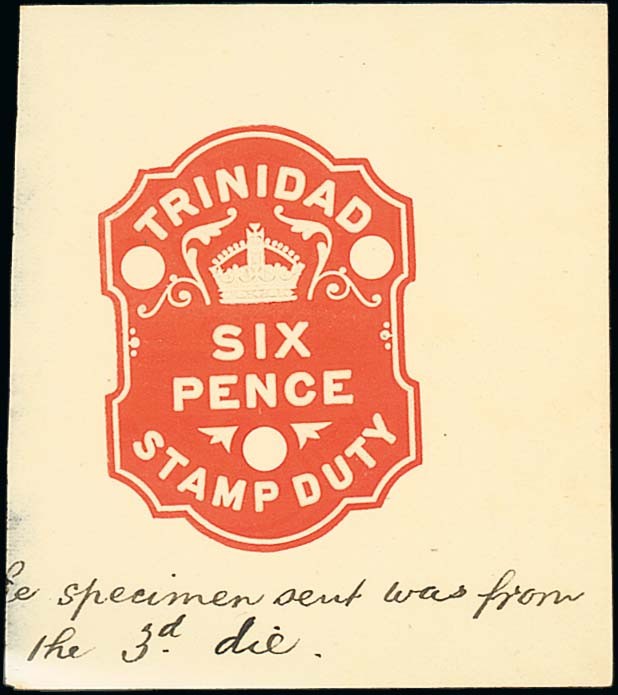 TRINIDAD
SIX
PENCE
STAMP DUTY
specimen sent was from
the 3d. die.